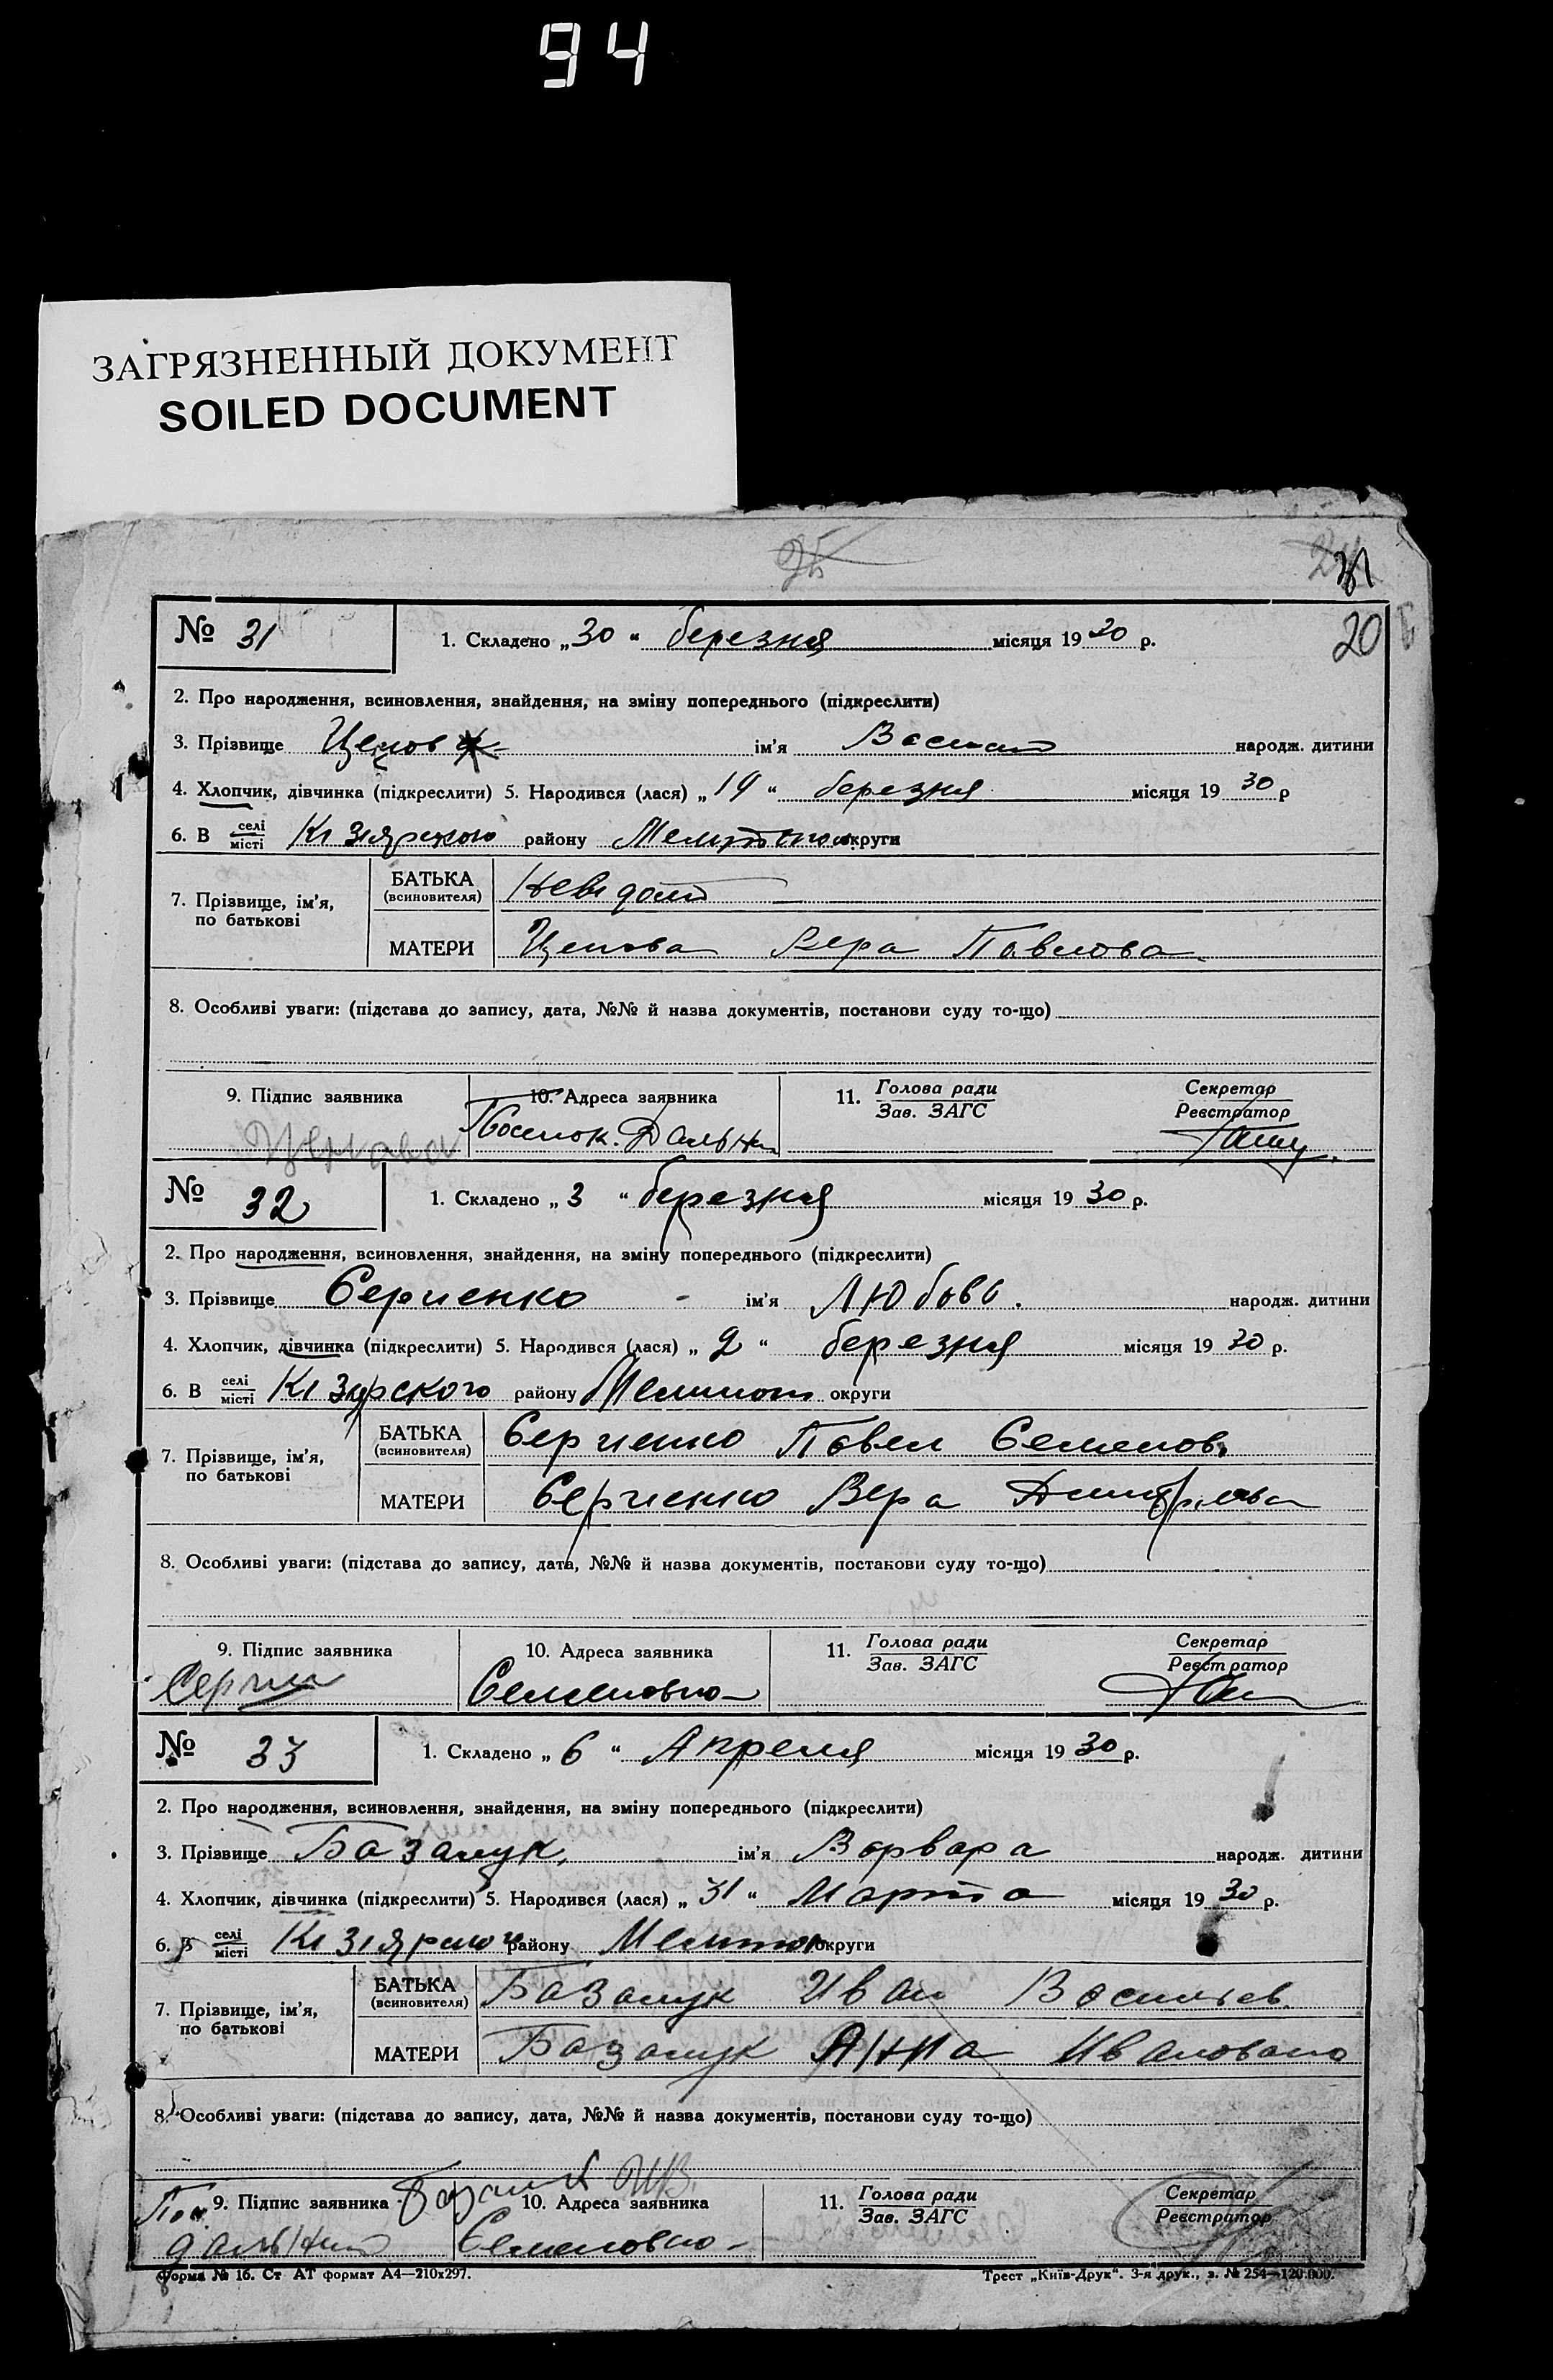 94
ЗАГРЯЗНЕННЫЙ ДОКУМЕНТ
SOILED DOCUMENT
31
20
№ 31 1. Складено „30“ березня місяця 1930 р.
2. Про народження, всиновлення, знайдення, на зміну попереднього (підкреслити)
3. Прізвище ім'я народж. дитини
4. Хлопчик, дівчинка (підкреслити) 5. Народився (лася) „19“ березня місяця 1930 р
6. В селі місті району округи
7. Прізвище, ім'я, по батькові
БАТЬКА (всиновителя)
МАТЕРИ Вера Павлова
8. Особливі уваги: (підстава до запису, дата, №№ й назва документів, постанови суду то-що)
9. Підпис заявника 10. Адреса заявника 11. Голова ради Зав. ЗАГС Секретар Реєстратор
Посилок. Дальн
№ 32 1. Складено „3“ березня місяця 1930 р.
2. Про народження, всиновлення, знайдення, на зміну попереднього (підкреслити)
3. Прізвище Сергиенко ім'я Любовь. народж. дитини
4. Хлопчик, дівчинка (підкреслити) 5. Народився (лася) „2“ березня місяця 1930 р.
6. В селі місті району округи
7. Прізвище, ім'я, по батькові
БАТЬКА (всиновителя) Сергиенко Павел Семенов.
МАТЕРИ Сергиенко Вера
8. Особливі уваги: (підстава до запису, дата, №№ й назва документів, постанови суду то-що)
9. Підпис заявника 10. Адреса заявника 11. Голова ради Зав. ЗАГС Секретар Реєстратор
Серги Семеновко
№ 33 1. Складено „6“ Апреля місяця 1930 р.
2. Про народження, всиновлення, знайдення, на зміну попереднього (підкреслити)
3. Прізвище Базалук, ім'я Варвара народж. дитини
4. Хлопчик, дівчинка (підкреслити) 5. Народився (лася) „31“ Марта місяця 1930 р.
6. В селі місті району округи
7. Прізвище, ім'я, по батькові
БАТЬКА (всиновителя) Базалук Иван Васильев.
МАТЕРИ Базалук Анна Ивановна
8. Особливі уваги: (підстава до запису, дата, №№ й назва документів, постанови суду то-що)
9. Підпис заявника 10. Адреса заявника 11. Голова ради Зав. ЗАГС Секретар Реєстратор
Семеновко
Форма № 16. Ст АТ формат А4—210х297. Трест „Київ-Друк“. 3-я друк., з. № 254—120.000.